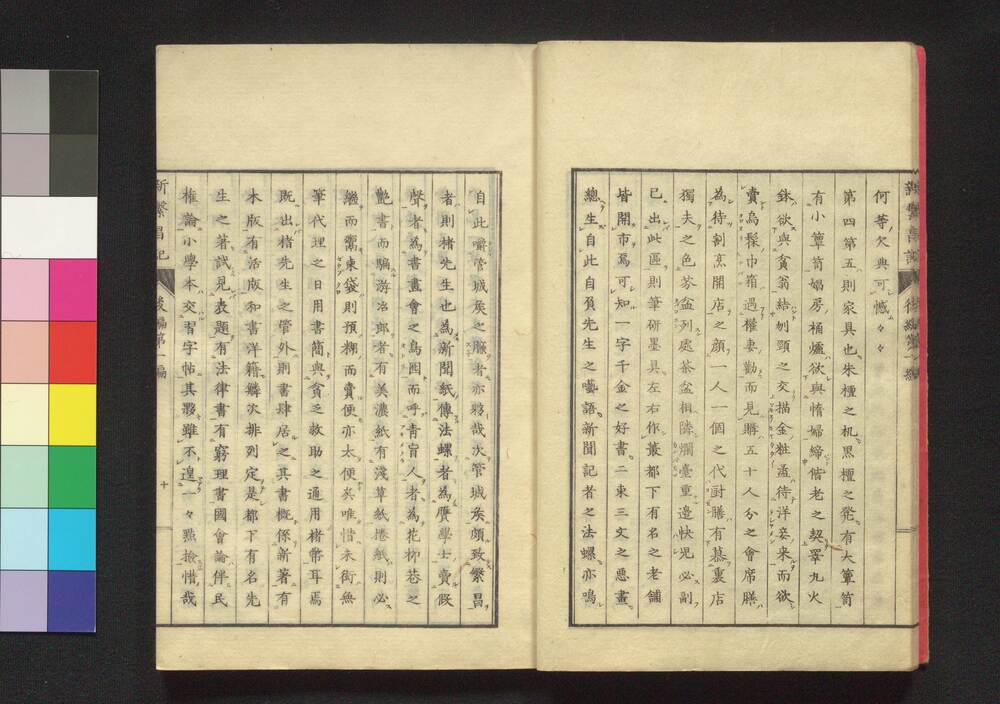 何等欠典可憾々々
第四第五則家具也朱檀之机黒檀之発有大簟笥
有小簟笥娼房桶爐欲與情婦締偕老之契罩九火
鉢欲與貧翁結刎頸之交描金粧盂待洋妾来而欲
賣烏髹巾箱遇權妻勸而見購五十人分之會席膳
為待割烹開店之顔一人一個之代厨膳有慕裏店
獨夫之色茶盆列處茶盆相隣爛臺重邊快児必副
已出此區則筆硏墨具左右作叢都下有名之老舗
皆開市焉可知一字千金之好書二束三文之悪畫
總生自此自負先生之囈語新聞記者之法螺亦鳴
自此嚼管城矦之臓者亦夥哉次管城矦頗致繁昌
者則楮先生也為新聞紙傳法螺者為贋學士賣假
聲者為書畫會之鳥囮而呼青盲人者為花柳巷之
艶書而騙游冶郎者有美濃紙有淺草紙捲紙則必
繼而鬻束袋則預糊而賣便亦太便矣唯惜未衒無
筆代理之日用書簡與貧乏救助之通用楮幣耳焉
既出楮先生之管外則書肆居之其書概係新著有
木版有活版和書洋籍鱗次排列定是都下有名先
生之著試見表題有法律書有窮理書國會論伴民
權論小學本交習字帖其夥雖不遑一々點撿惜哉
新繁昌記
後編第一編
十